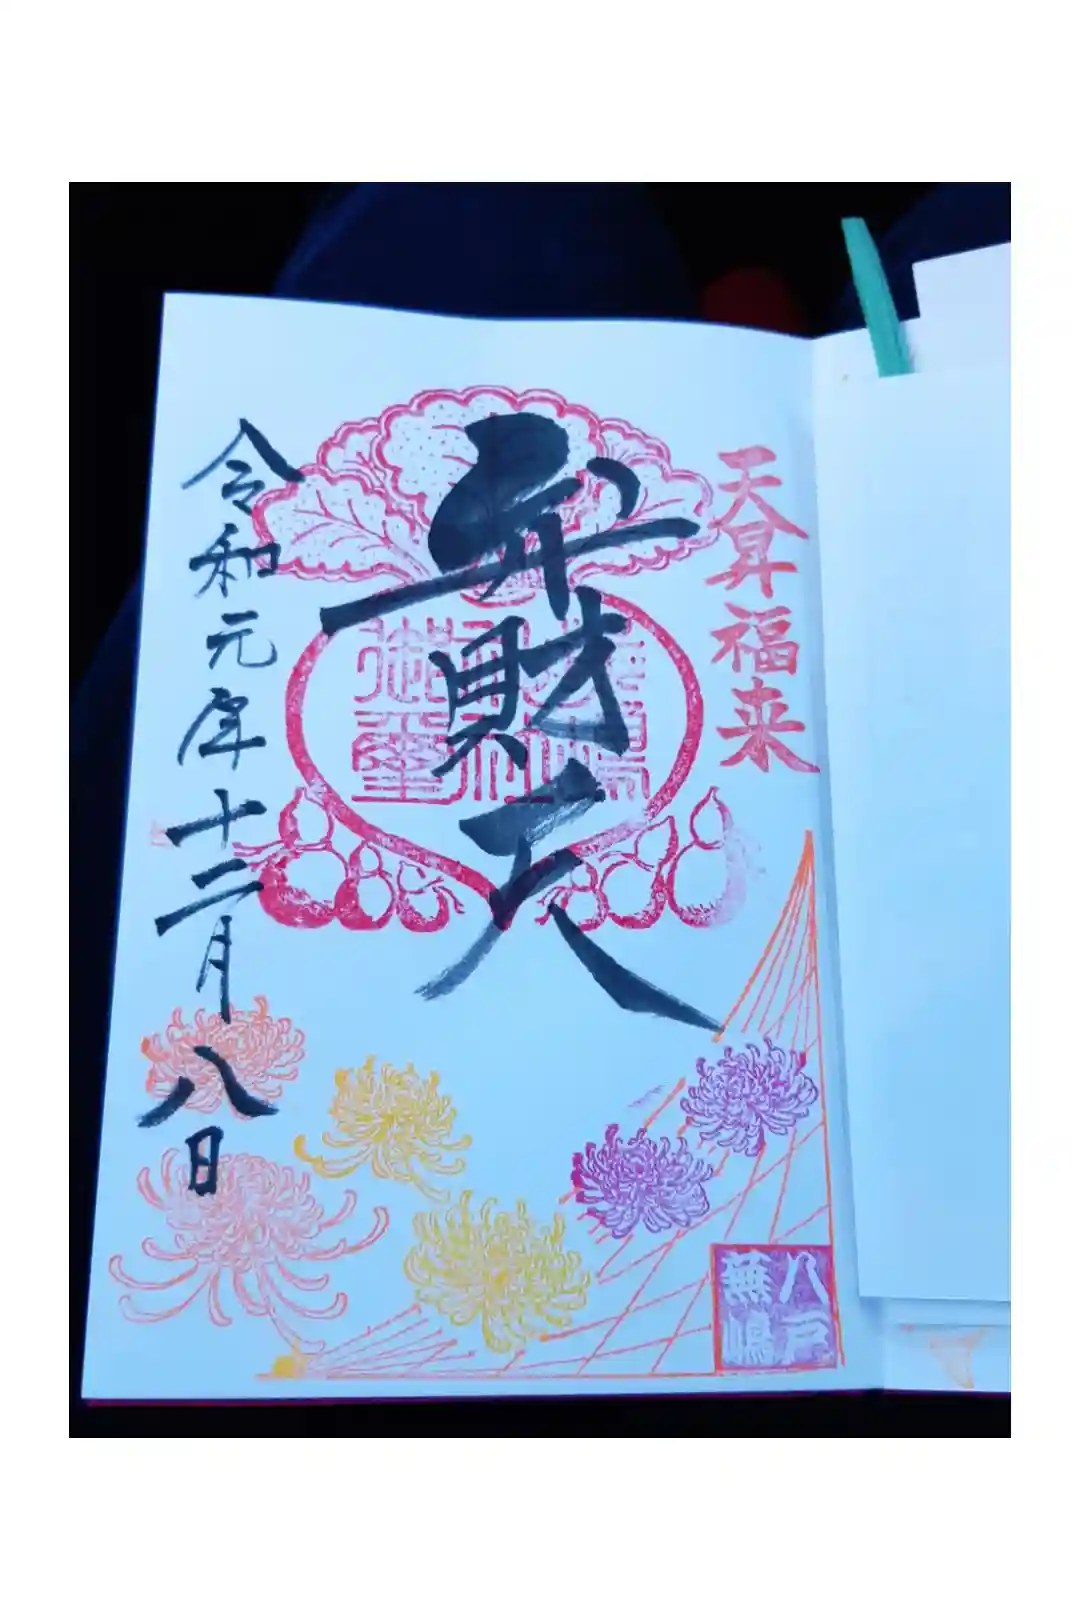 天昇福来
弁財天
令和元年十二月八日
八戸
蕪嶋